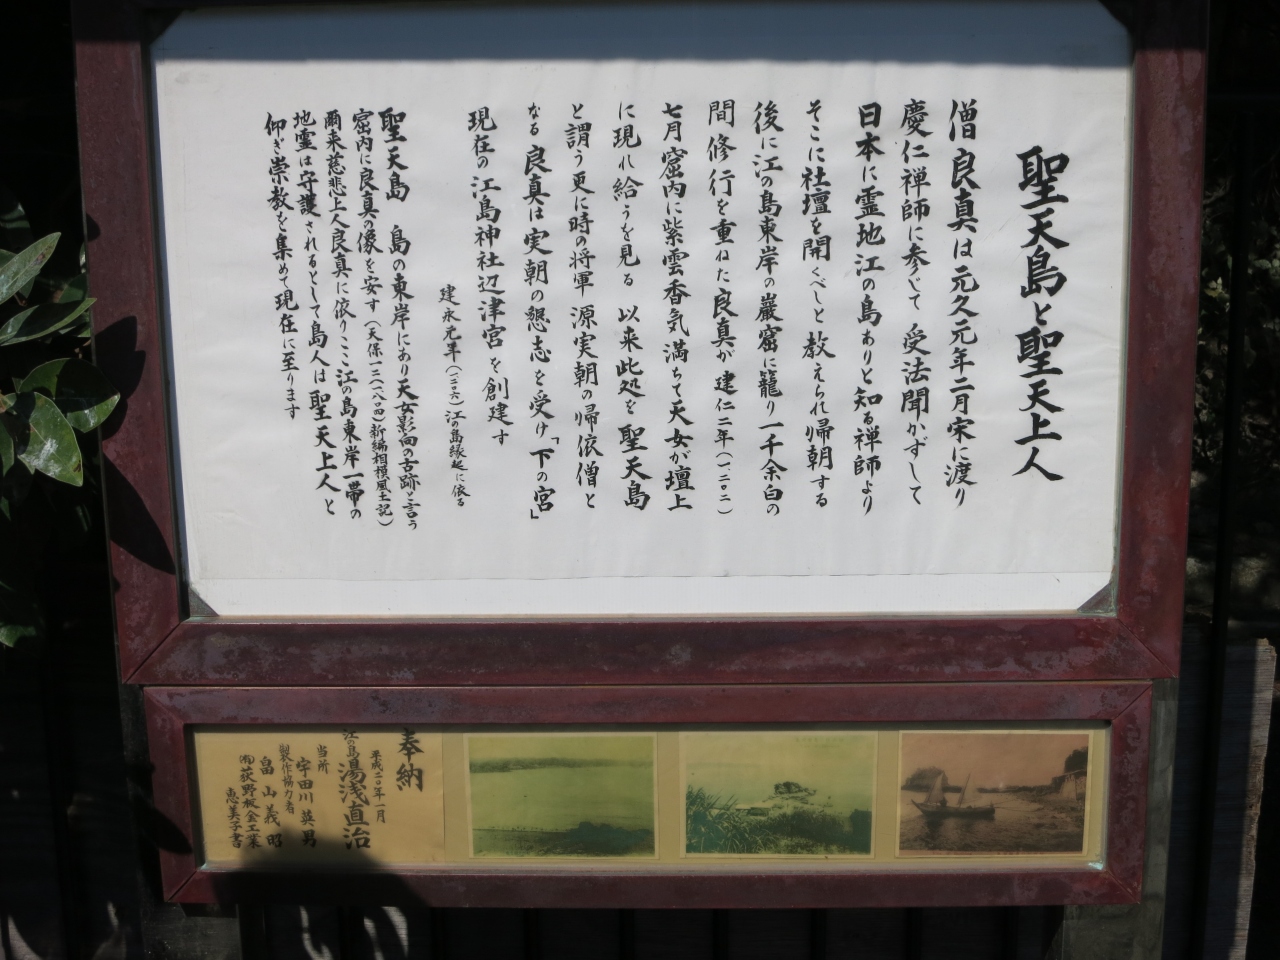 聖天島と聖天上人
僧 良真は元久元年二月宋に渡り
慶仁禅師に参じて 受法聞かずして
日本に霊地江の島ありと知る禅師より
そこに社壇を開くべしと教えられ帰朝する
後に江の島東岸の巌窟に籠り一千余日の
間修行を重ねた良真が建仁二年(一二〇二)
七月窟内に紫雲香気満ちて天女が壇上
に現れ給うを見る 以来此処を聖天島
と謂う更に時の将軍 源実朝の帰依僧と
なる良真は実朝の懇志を受け「下の宮」
現在の江島神社辺津宮を創建す
建永元年(一二〇六)江の島縁起に依る
聖天島 島の東岸にあり天女影向の古跡と言う
窟内に良真の像を安す(天保一二(一八四一)新編相模風土記)
爾来慈悲上人良真に依りここ江の島東岸一帯の
地霊は守護されるとして島人は聖天上人と
仰ぎ崇敬を集めて現在に至ります
奉納
平成二〇年一月
江の島 湯浅直治
当所
宇田川英男
製作協力者
畠山義昭
㈲荻野板金工業
恵美子書